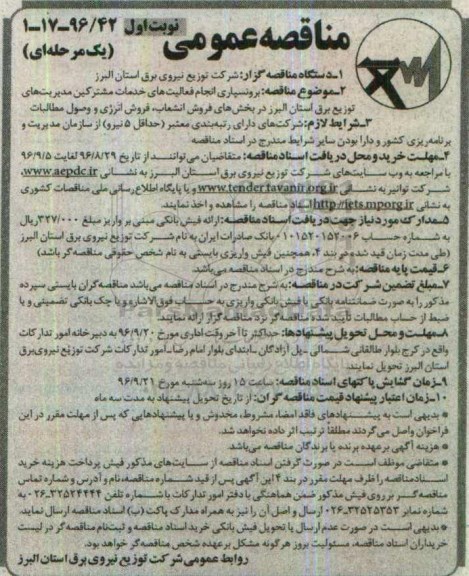 نوبت اول ۹۶/۴۲-۱۷-۱
مناقصه عمومی
(یک مرحله‌ای)
۱-دستگاه مناقصه گزار: شرکت توزیع نیروی برق استان البرز
۲-موضوع مناقصه: برونسپاری انجام فعالیت‌های خدمات مشترکین مدیریت‌های
توزیع برق استان البرز در بخش‌های فروش انشعاب، فروش انرژی و وصول مطالبات
۳-شرایط لازم: شرکت‌های دارای رتبه‌بندی معتبر (حداقل ۵ نیرو) از سازمان مدیریت و
برنامه‌ریزی کشور و دارا بودن سایر شرایط مندرج در اسناد مناقصه
۴-مهلت خرید و محل دریافت اسناد مناقصه: متقاضیان می‌توانند از تاریخ ۹۶/۸/۲۹ لغایت ۹۶/۹/۵
با مراجعه به وب سایت‌های شرکت توزیع نیروی برق استان البرز به نشانی www.aepdc.ir،
شرکت توانیر به نشانی www.tender.tavanir.org.ir و یا پایگاه اطلاع رسانی ملی مناقصات کشوری
به نشانی http://iets.mporg.ir اسناد مناقصه را مشاهده و اخذ نمایند.
۵-مدارک مورد نیاز جهت دریافت اسناد مناقصه: ارائه فیش بانکی مبنی بر واریز مبلغ ۳۲۷/۰۰۰ ریال
به شماره حساب ۰۱۰۱۵۲۰۱۵۲۰۰۶ بانک صادرات ایران به نام شرکت توزیع نیروی برق استان البرز
(طی مدت زمان قید شده در بند ۴، همچنین فیش واریزی بایستی به نام شخص حقوقی مناقصه‌گر باشد)
۶-قیمت پایه مناقصه: به شرح مندرج در اسناد مناقصه می‌باشد.
۷-مبلغ تضمین شرکت در مناقصه: به شرح مندرج در اسناد مناقصه می‌باشد مناقصه‌گران بایستی سپرده
مذکور را به صورت ضمانتنامه بانکی یا فیش بانکی واریزی به حساب فوق‌الاشاره و یا چک بانکی تضمینی و یا
ضبط از حساب مطالبات تأیید شده مناقصه‌گر نزد مناقصه گزار ارائه نمایند.
۸-مهلت و محل تحویل پیشنهادها: حداکثر تا آخر وقت اداری مورخ ۹۶/۹/۲۰ به دبیرخانه امور تدارکات
واقع در کرج بلوار طالقانی شمالی -پل آزادگان -ابتدای بلوار امام رضا -امور تدارکات شرکت توزیع نیروی برق
استان البرز تحویل نمایند.
۹-زمان گشایش پاکتهای اسناد مناقصه: ساعت ۱۵ روز سه‌شنبه مورخ ۹۶/۹/۲۱
۱۰-زمان اعتبار پیشنهاد قیمت مناقصه گران: از تاریخ تحویل پیشنهاد به مدت سه ماه
* بدیهی است به پیشنهادهای فاقد امضا، مشروط، مخدوش و یا پیشنهادهایی که پس از مهلت مقرر در این
فراخوان واصل می‌گردند مطلقاً ترتیب اثر داده نخواهد شد.
* هزینه آگهی بر عهده برنده یا برندگان مناقصه می‌باشد.
* متقاضی موظف است در صورت گرفتن اسناد مناقصه از سایت‌های مذکور فیش پرداخت هزینه خرید
اسناد مناقصه را ظرف مهلت مقرر در بند ۴ این آگهی پس از قید شماره مناقصه، نام و آدرس و شماره تماس
مناقصه‌گر بر روی فیش مذکور ضمن هماهنگی با دفتر امور تدارکات با شماره تلفن ۳۲۵۲۴۴۴۴-۰۲۶ به
شماره نمابر ۳۲۵۲۵۳۵۳-۰۲۶ ارسال و اصل آن را نیز به همراه مدارک پاکت (ب) اسناد مناقصه ارسال نماید.
* بدیهی است در صورت عدم ارسال یا تحویل فیش بانکی خرید اسناد مناقصه و ثبت نام مناقصه‌گر در لیست
خریداران اسناد مناقصه، مسئولیت بروز هرگونه مشکل بر عهده شخص مناقصه‌گر خواهد بود.
روابط عمومی شرکت توزیع نیروی برق استان البرز